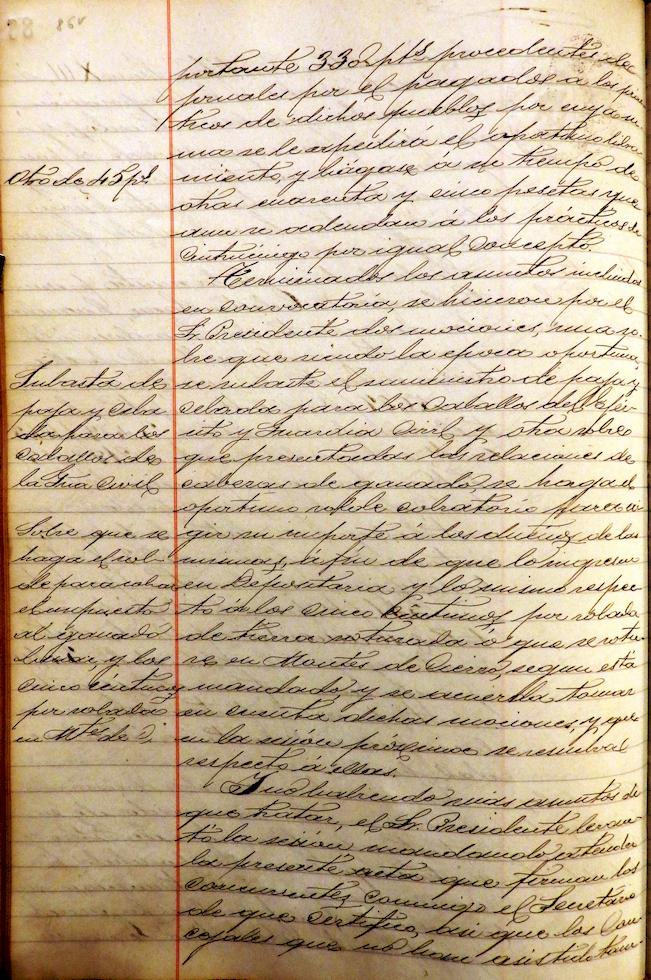 86v
portante 330 pts procedentes de
jornales por el pagados a los prac
ticos de dichos pueblos por cuya su
ma se le expedirá el oportuno libra
miento, y hágase á su tiempo de
otras cuarenta y cinco pesetas que
aun se adeudan á los prácticos de
Cintruénigo por igual concepto.
Otro de 45 pts
Terminados los asuntos incluidos
en convocatoria, se hicieron por el
Sr. Presidente dos mociones, una so-
bre que siendo la época oportuna,
se subaste el suministro de paja y
cebada para los caballos del Ejér-
cito y Guardia Civil y otra sobre
que presentadas las relaciones de
cabezas de ganado, se haga el
oportuno rolde cobratorio para exi
gir su importe á los dueños de las
mismas, á fin de que lo ingresen
en Depositaria y lo mismo respec-
to á los cinco céntimos por robada
de tierra roturada ó que se rotu-
re en Montes de Cierzo, segun está
mandado, y se acuerda tomar
en cuenta dichas mociones, y que
en la sesión próxima se resuelva
respecto á ellas.
Subasta de
paja y ceba
da para los
caballos de
la Gua Civil
Sobre que se
haga el rol-
de para cobrar
el impuesto
al ganado
y los
cinco céntimos
por robada
en Mtes de C.
Y no habiendo más asuntos de
que tratar, el Sr. Presidente levan
tó la sesión mandando extender
la presente acta que firman los
concurrentes conmigo el Secretario
de que certifico, así que los Con
cejales que no han asistido